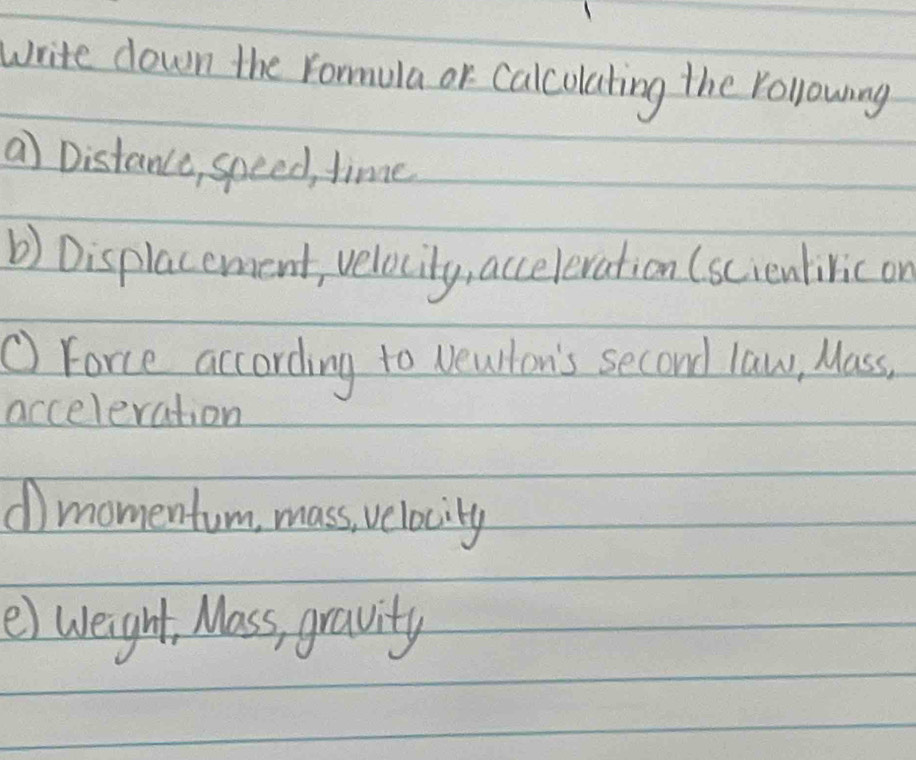 Write down the Formula of Calculating the Following
a) Distance, speed, time
b) Displacement, velocity, acceleration (scientific on
c) Force according to Newton's second law, Mass,
acceleration
d) momentum, mass, velocity
e) Weight, Mass, gravity